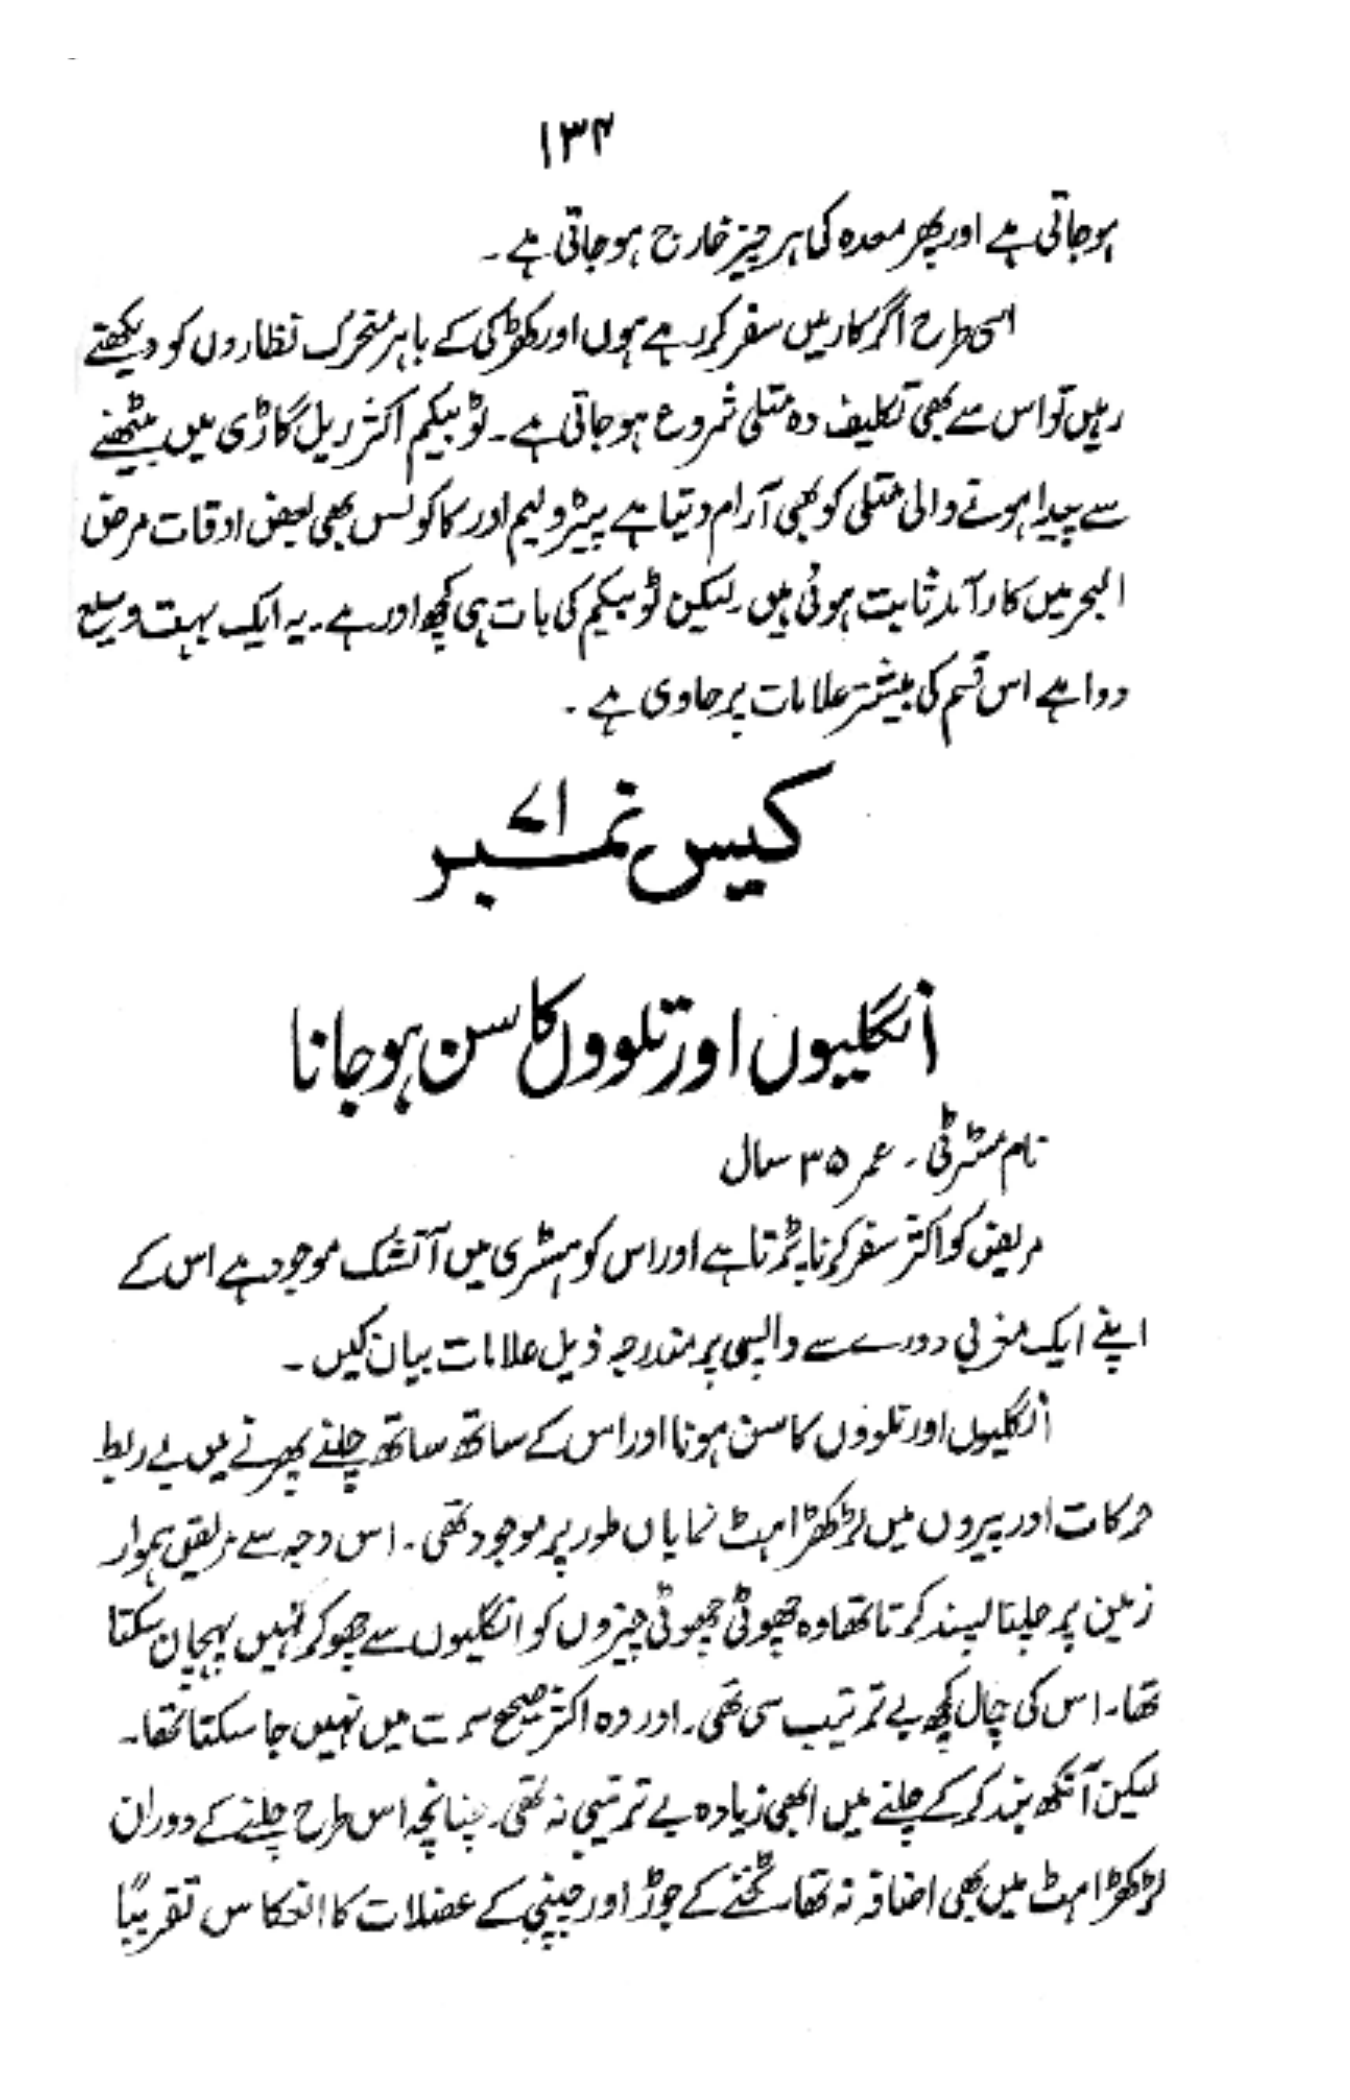 ۱۳۴
ہوجاتی ہے اور پھر معدہ کی ہر چیز خارج ہوجاتی ہے۔
اسی طرح اگر کار میں سفر کررہے ہوں اور کھڑکی کے باہر متحرک نظاروں کو دیکھتے
رہیں تو اس سے بھی تکلیف دہ متلی شروع ہوجاتی ہے۔ ٹوبیکم اکثر ریل گاڑی میں بیٹھنے
سے پیدا ہونے والی متلی کو بھی آرام دیتا ہے پیٹرولیم اور کاکولس بھی بعض اوقات مرض
البحر میں کارآمد ثابت ہوئی ہیں۔ لیکن ٹوبیکم کی بات ہی کچھ اور ہے۔ یہ ایک بہت وسیع
دوا ہے اس قسم کی بیشتر علامات پر حاوی ہے۔
کیس نمبر ۷۱
انگلیوں اور تلووں کا سن ہوجانا
نام مسٹر ٹی۔ عمر ۳۵ سال
مریض کو اکثر سفر کرنا پڑتا ہے اور اس کو ہسٹری میں آتشک موجود ہے اس کے
اپنے ایک مغربی دورے سے واپسی پر مندرجہ ذیل علامات بیان کیں۔
انگلیوں اور تلووں کا سن ہونا اور اس کے ساتھ ساتھ چلنے پھرنے میں بے ربط
حرکات اور پیروں میں لڑکھڑاہٹ نمایاں طور پر موجود تھی۔ اس وجہ سے مریض ہموار
زمین پر چلنا پسند کرتا تھا وہ چھوٹی چھوٹی چیزوں کو انگلیوں سے چھو کر نہیں پہچان سکتا
تھا۔ اس کی چال کچھ بے ترتیب سی تھی۔ اور وہ اکثر صحیح سمت میں نہیں جا سکتا تھا۔
لیکن آنکھ بند کر کے چلنے میں ابھی زیادہ بے ترتیبی نہ تھی۔ چنانچہ اس طرح چلنے کے دوران
لڑکھڑاہٹ میں بھی اضافہ نہ تھا۔ ٹخنے کے جوڑ اور چپنی کے عضلات کا انعکاس تقریباً